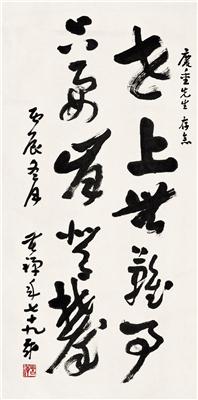 慶先生存念
世上無難事
只要肯登攀
丙辰冬月
黃年七十九